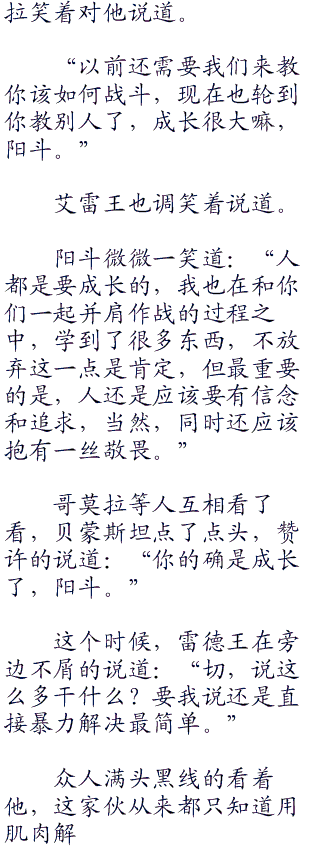 拉笑着对他说道。
“以前还需要我们来教
你该如何战斗，现在也轮到
你教别人了，成长很大嘛，
阳斗。”
艾雷王也调笑着说道。
阳斗微微一笑道：“人
都是要成长的，我也在和你
们一起并肩作战的过程之
中，学到了很多东西，不放
弃这一点是肯定，但最重要
的是，人还是应该要有信念
和追求，当然，同时还应该
抱有一丝敬畏。”
哥莫拉等人互相看了
看，贝蒙斯坦点了点头，赞
许的说道：“你的确是成长
了，阳斗。”
这个时候，雷德王在旁
边不屑的说道：“切，说这
么多干什么？要我说还是直
接暴力解决最简单。”
众人满头黑线的看着
他，这家伙从来都只知道用
肌肉解